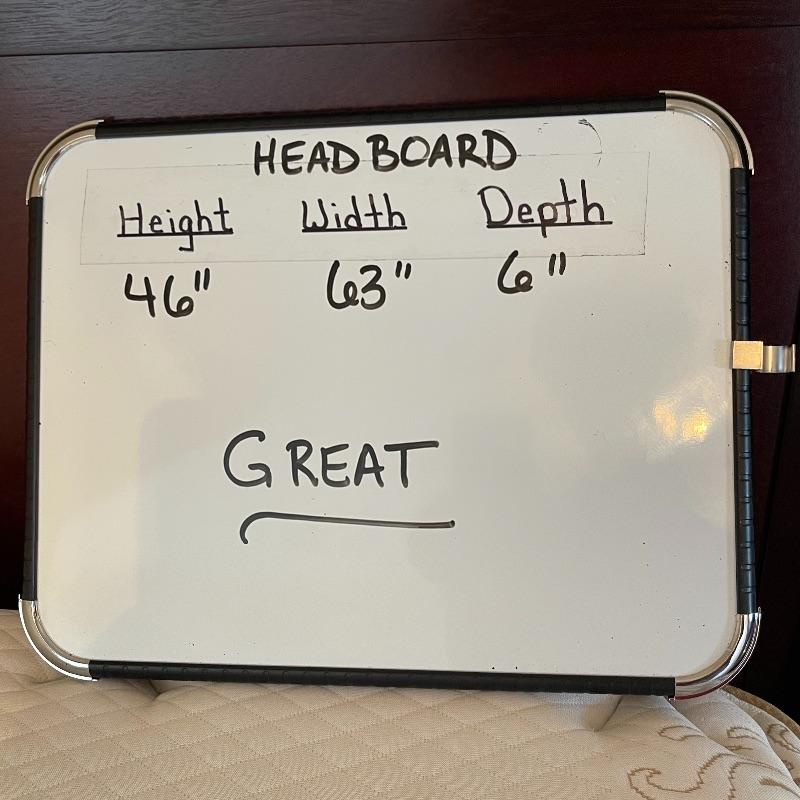 HEADBOARD
Height Width Depth
46" 63" 6"
GREAT